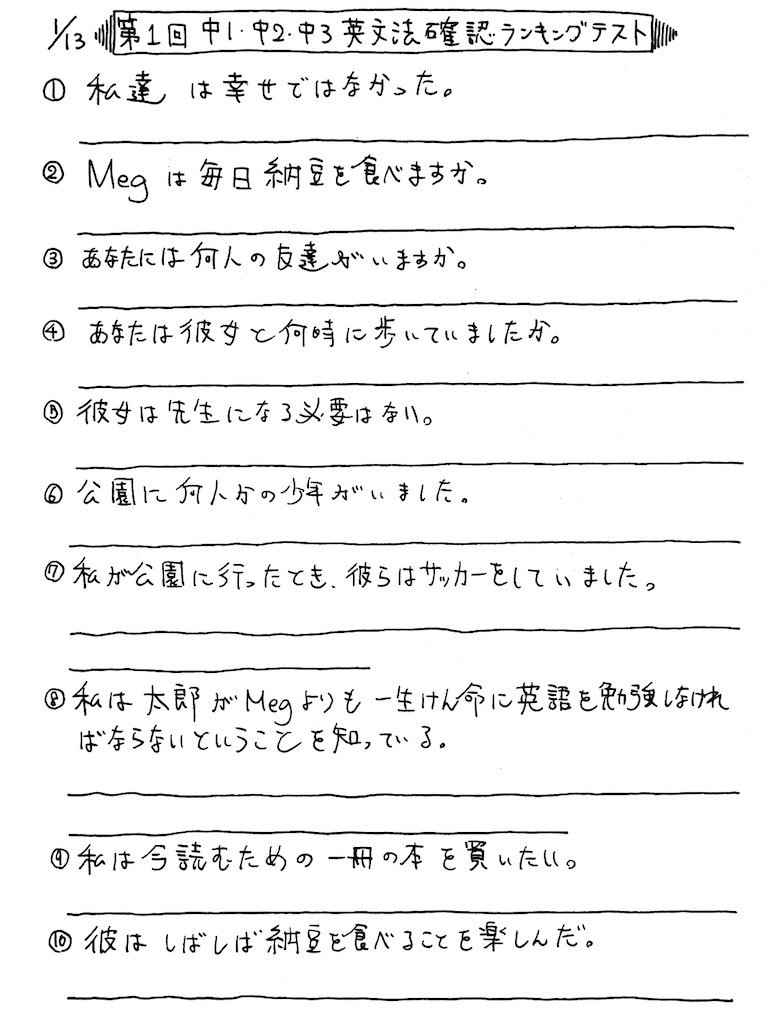 1/13 第1回 中1・中2・中3 英文法確認ランキングテスト
① 私達 は幸せではなかった。
② Meg は毎日納豆を食べますか。
③ あなたには何人の友達がいますか。
④ あなたは彼女と何時に歩いていましたか。
⑤ 彼女は先生になる必要はない。
⑥ 公園に何人かの少年がいました。
⑦ 私が公園に行ったとき、彼らはサッカーをしていました。
⑧ 私は太郎がMegよりも一生けん命に英語を勉強しなけれ
ばならないということを知っている。
⑨ 私は今読むための一冊の本を買いたい。
⑩ 彼はしばしば納豆を食べることを楽しんだ。